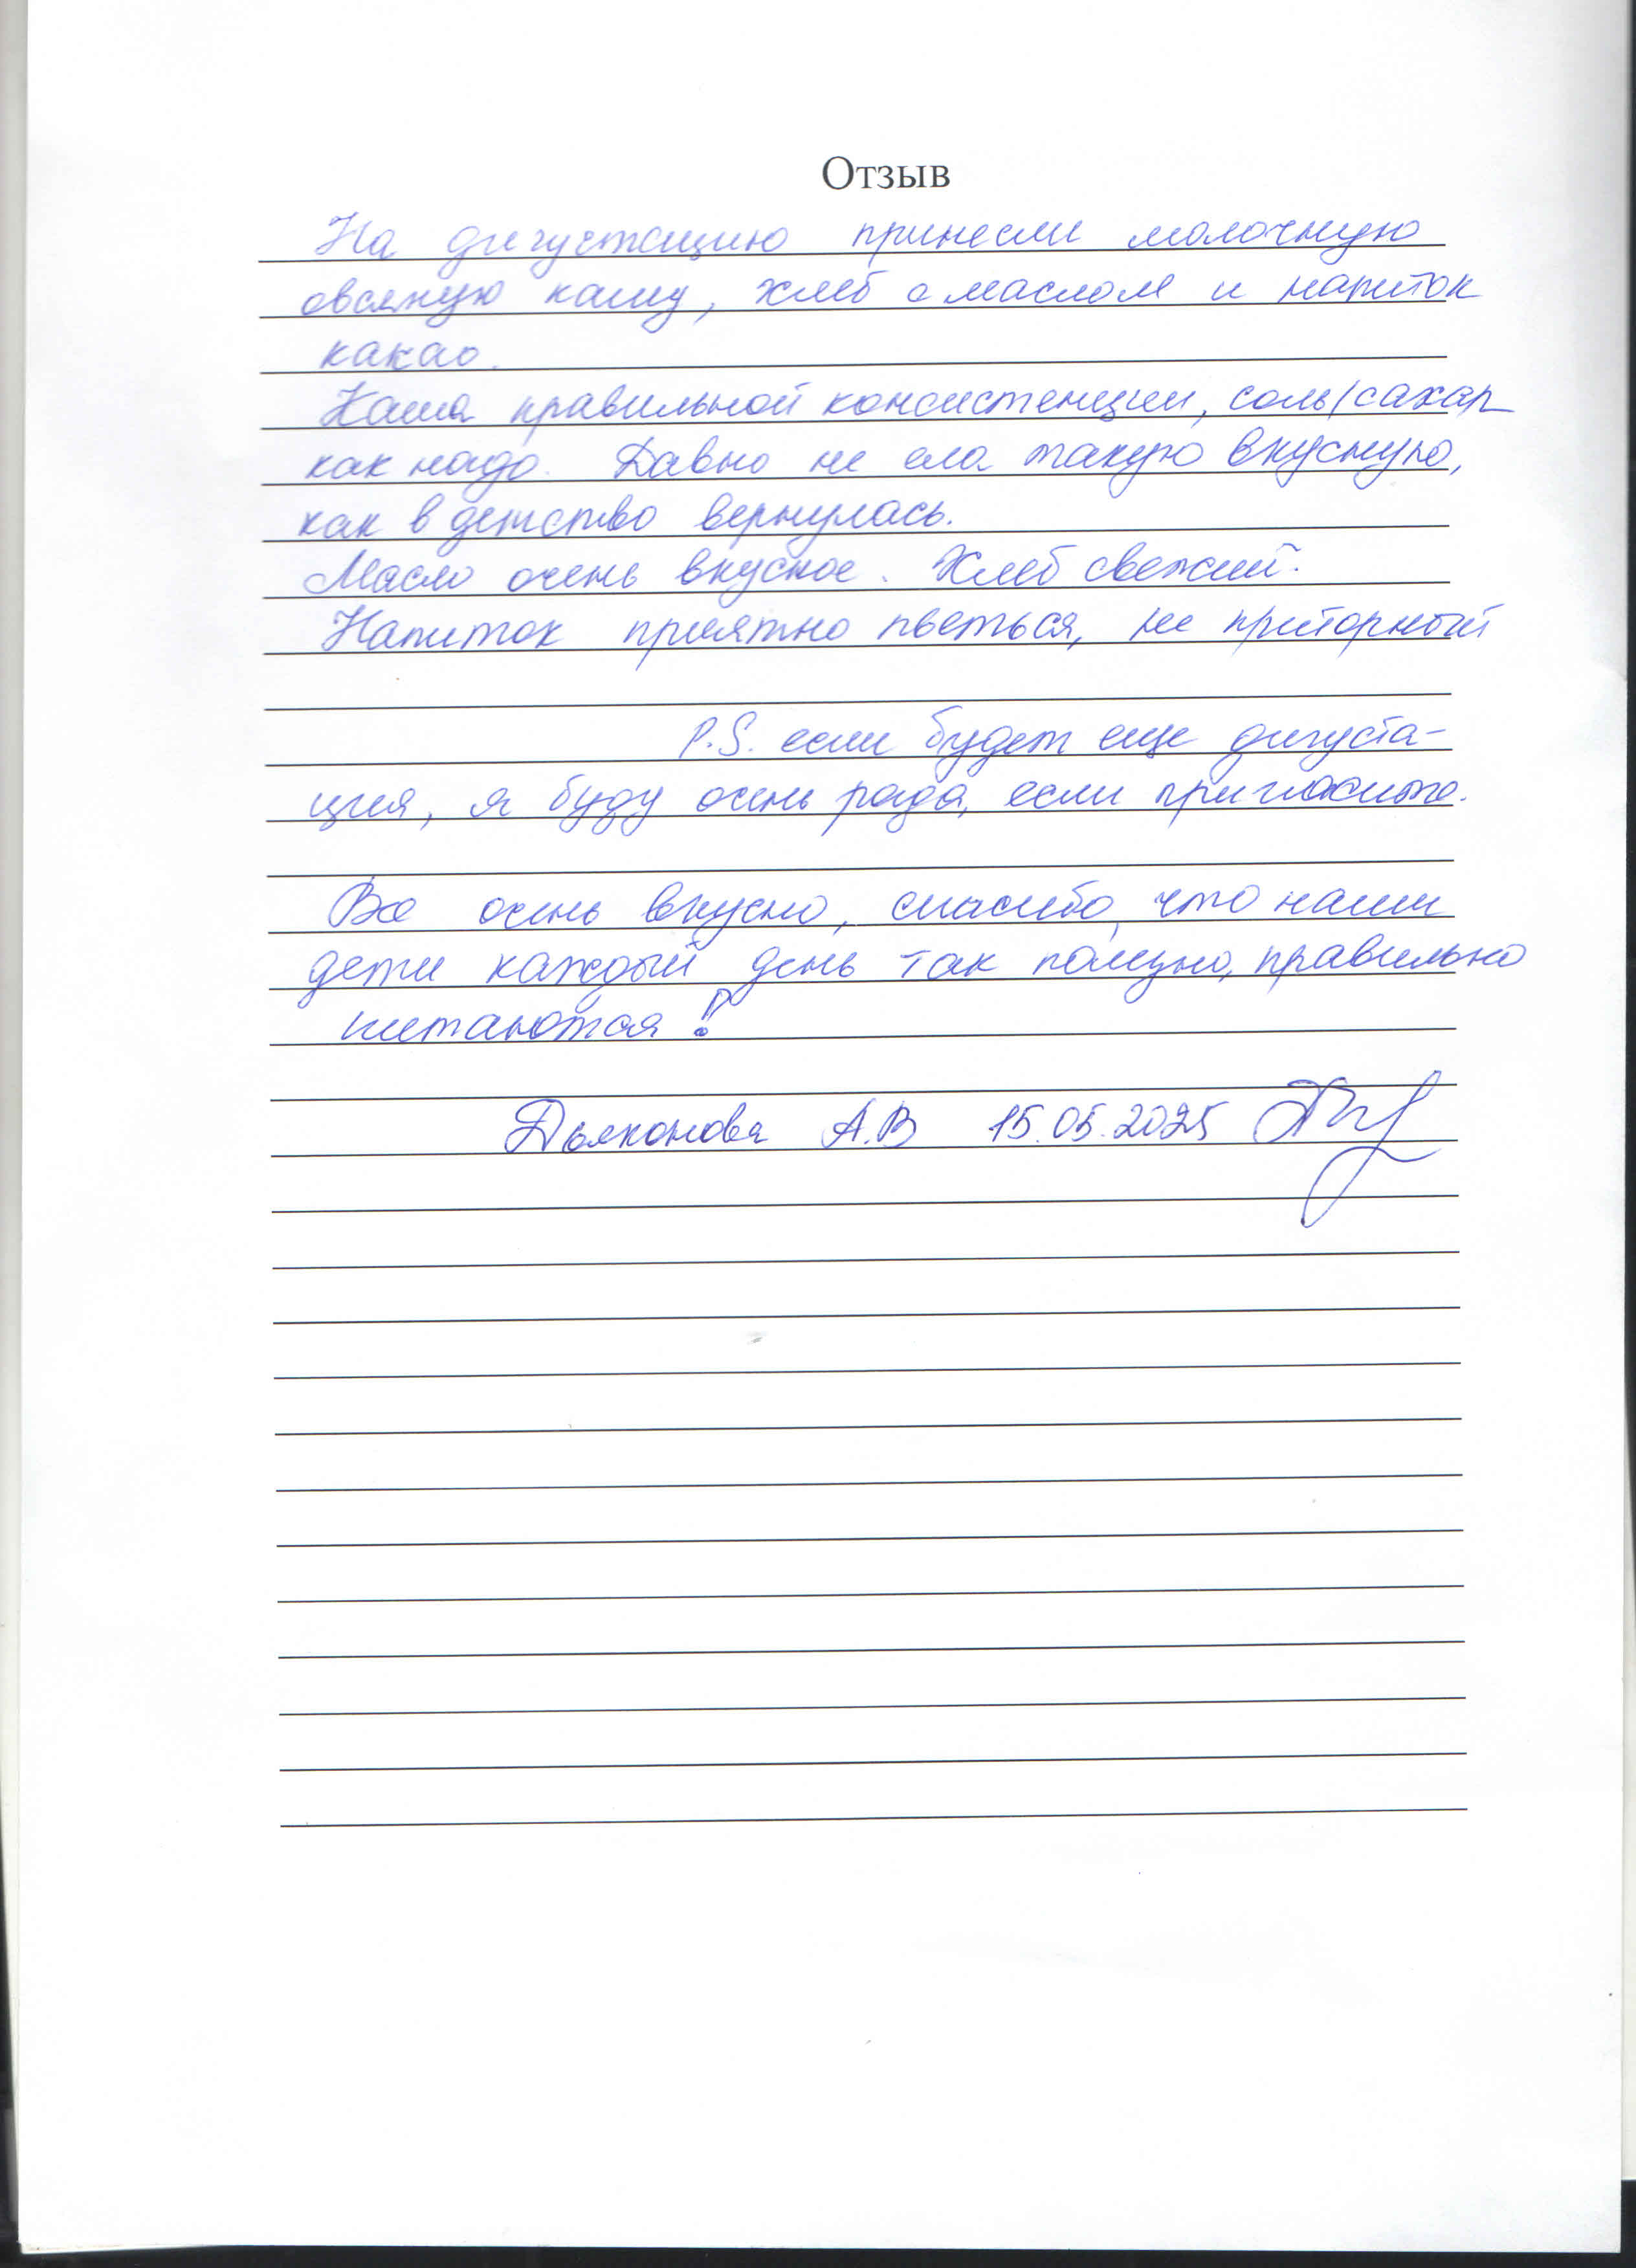 Отзыв
На дигустацию принесли молочную
овсяную кашу, хлеб с маслом и напиток
какао.
Каша правильной консистенции, соль/сахар
как надо. Давно не ела такую вкусную,
как в детство вернулась.
Масло очень вкусное. Хлеб свежий.
Напиток приятно пьеться, не приторный
P.S. если будет еще дигуста-
ция, я буду очень рада, если пригласите.
Все очень вкусно, спасибо, что наши
дети каждый день так полезно, правильно
питаются!
Дьяконова А.В 15.05.2025